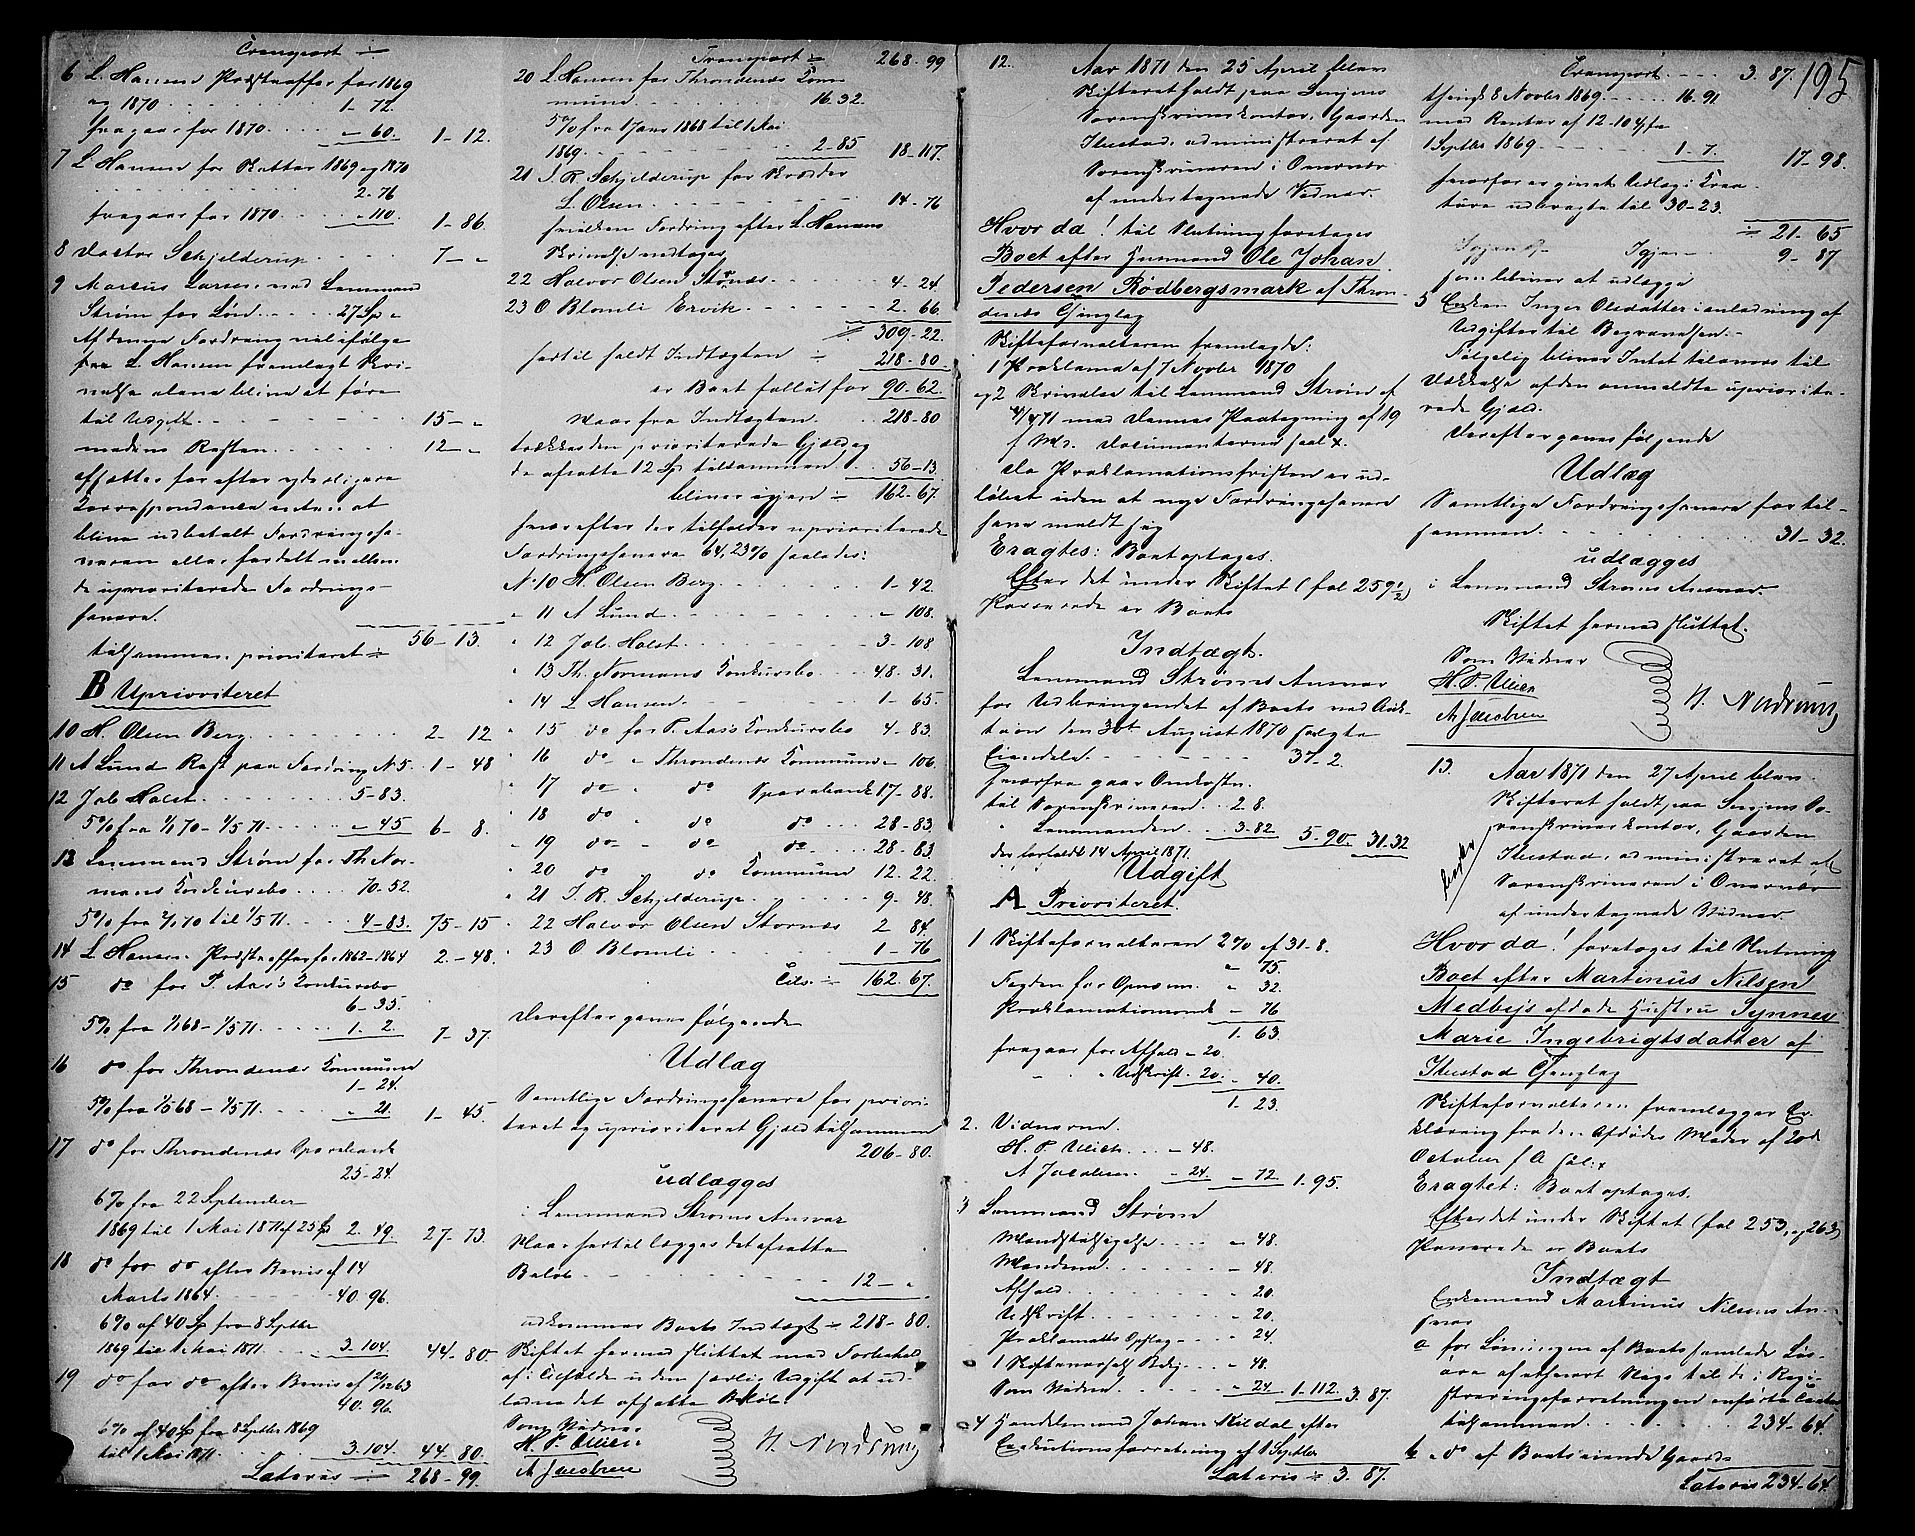 Transport ÷
6 L. Hansen Poststraffer for 1869
og 1870 . . . . 1-72.
fragaar for 1870 . . . . „-60. 1-12.
7 L. Hansen for Skatter 1869 og 1870
2-76
fragaar for 1870 . . . . „-110. 1-86.
8 Doctor Schjelderup . . . . 7-„
9 Marcus Larsen ved Lensmand
Strøm for Løn . . . . 27 Sp „
Af denne Fordring vil ifølge
L. Hansen fremlagt Skri-
velse alene blive at føre
til Udgift . . . . 15-„
medens Resten . . . . 12-„
afsættes for efter yderligere
Correspondance enten at
blive udbetalt Fordringsha-
veren eller fordelt mellem
de uprioriterede Fordrings-
havere.
tilsammen prioriteret ÷ 56-13.
B Uprioriteret
10 H. Olsen Berg . . . . 2-12
11 A Lund Rest paa Fordring N. 5. 1-48
12 Job Holst . . . . 5-83.
5% fra 1/1 70 - 1/5 71 . . . . „-45 6-8.
13 Lensmand Strøm for Th Nor-
mans Konkursbo . . . . 70-52.
5% fra 2/1 70 til 1/5 71 . . . . 4-83. 75-15
14 L Hansen Poststraffer for 1862-1864 2-48.
15 do for P. Aas's Konkursbo
6-35.
5% fra 1/1 68 - 1/5 71 . . . . 1-2. 7-37.
16 do for Throndenæs Kommune
1-24.
5% fra 1/5 68 - 1/5 71 . . . . „-21. 1-45
17 do for Throndenæs Sparebank
25-24.
6% fra 22 September
1869 til 1 Mai 1871 af 25 Sp 2-49. 27-73.
18 do for do efter Bevis af 14
Marts 1864 . . . . 40-96.
6% af 40 Sp fra 8 Septbr
1869 til 1 Mai 1871 . . . . 3-104. 44-80.
19 do for do efter Bevis af 29/12 63
40-96.
6% af 40 Sp fra 8 Septbr 1869
til 1 Mai 1871 . . . . 3-104. 44-80.
Lateris ÷ 268-99.
Transport ÷ 268-99
20 L. Hansen for Throndenæs Kom-
mune . . . . 16-32.
5% fra 1 Janr 1868 til 1 Mai
1869 . . . . 2-85 18-117.
21 J. R. Schjelderup for Skræder
L. Olsen . . . . 14-76
hvilken Fordring efter L. Hansens
Skrivelse modtages
22 Halvor Olsen Stornæs . . . . 4-24
23 O Blomli Ervik . . . . 2-66
÷ 309-22.
hertil holdt Indtægten ÷ 218-80
er Boet fallit for 90-62.
Naar fra Indtægten . . 218-80
trækkes den prioriterede Gjæld og
de afsatte 12 Sp tilsammen . . 56-13.
bliver igjen ÷ 162-67.
hvorefter der tilfalder uprioriterede
Fordringshavere 64,23% saaledes:
N. 10 H. Olsen Berg . . . . 1-42.
„ 11 A Lund . . . . „-108.
„ 12 Job. Holst . . . . 3-108
„ 13 Th. Normans Konkursbo . . . . 48-31.
„ 14 L Hansen . . . . 1-65.
„ 15 do for P. Aas's Konkursbo 4-83.
„ 16 do „ Throndenæs Kommune „-106.
„ 17 do „ do Sparebank 17-88.
„ 18 do „ do do . . 28-83.
„ 19 do „ do do . . 28-83.
„ 20 do „ do Kommune 12-22.
„ 21 J. R. Schjelderup . . . . 9-48.
„ 22 Halvor Olsen Stornæs 2-84.
„ 23 O Blomli . . . . 1-76
Tils. ÷ 162-67.
Derefter gaves følgende
Udlæg
Samtlige Fordringshavere for priori-
teret og uprioriteret Gjæld tilsammen
206-80.
udlægges
i Lensmand Strøms Ansvar
Naar hertil lægges det afsatte
Beløb . . . . 12-„
udkommer Boets Indtægt ÷ 218-80.
Skiftet hermed sluttet med Forbehold
af i Tilfælde uden særlig Udgift at ud-
lodne det afsatte Beløb.
Som Vidner
H. P. Ulich
A Jacobsen
N. Nordrum
12. Aar 1871 den 25 April blev
Skifteret holdt paa Senjens
Sorenskriverkontor, Gaarden
Ibestad, administreret af
Sorenskriveren i Overvær
af undertegnede Vidner.
Hvor da! til Slutning foretoges
Boet efter Husmand Ole Johan
Pedersen Rødbergsmark af Thron-
denæs Thinglag
Skifteforvalteren fremlagde:
1 Proklama af 7 Novbr 1870
og 2 Skrivelse til Lensmand Strøm af
4/4 71 med dennes Paategning af 19
s. M. Documenterne saal.x.
Da Proklamationsfristen er ud-
løbet uden at nye Fordringshavere
have meldt sig
Eragtes: Boet optages.
Efter det under Skiftet (fol 259 1/2)
Passerede er Boets
Indtægt.
Lensmand Strøms Ansvar
for Udbringendet af Boets ved Auk-
tion den 30te August 1870 solgte
Eiendele . . . . 37-2.
hvorfra gaar Omkostn.
til Sorenskriveren . . 2-8.
„ Lensmanden . . 3-82 5-90. 31-32
der forfaldt 14 April 1871.
Udgift
A Prioriteret
1 Skifteforvalteren 2% af 31-8.
„-75.
Fogden for Opnævn. „-32.
Proklamationsomk. „-76
1-63.
fragaar for Afhold „-20.
„ „ Udskrift. 20. „-40.
1-23.
2. Vidnerne.
H. P. Ulich . . „-48.
A Jacobsen . . „-24. „-72. 1-95.
3 Lensmand Strøm
Mandstilsigelse . . . . „-48.
Mændene . . . . „-48.
Afhold . . . . „-20.
Udskrift . . . . „-20.
Proklamatts Opslag . . . . „-24.
„-48.
Som Vidner . . . . „-24 1-112. 3-87.
4 Handelsmand Johan Kildal efter
Executionsforretning af 1 Septbr
Lateris ÷ 3-87.
195
Transport . . . . 3-87.
thingl 8 Novbr 1869 . . . . 16-91
med Renter af 12-104 fra
1 Septbr 1869 . . . . 1-7. 17-98.
hvorfor er givet Udlæg i Krea-
turer udbragte til 30-23.
÷ 21-65
Igjen 9-87
som bliver at udlægge
5 Enken Inger Olsdatter i anledning af
Udgifter til Begravelsen.
Følgelig bliver Intet tilovers til
Dækkelse af den anmeldte upriorite-
rede Gjæld.
Derefter gaves følgende
Udlæg
Samtlige Fordringshavere for til-
sammen . . . . 31-32.
udlægges
i Lensmand Strøms Ansvar.
Skiftet hermed sluttet.
Som Vidner
H. P. Ulich
A Jacobsen
N. Nordrum
13. Aar 1871 den 27 April blev
Skifteret holdt paa Senjens So-
renskriverkontor, Gaarden
Ibestad, administreret af
Sorenskriveren i Overvær
af undertegnede Vidner.
Hvor da! foretoges til Slutning
Boet efter Martinus Nilsen
Medbyes afdøde Hustru Synnev
Marie Ingebrigtsdatter af
Ibestad Thinglag
Skifteforvalteren fremlægger Er-
klæring fra den Afdødes Moder af 20de
October f A saal.x
Eragtet: Boet optages.
Efter det under Skiftet (fol 253, og 263)
Passerede er Boets
Indtægt
Enkemand Martinus Nilsens An-
svar
a for Løsningen af Boets samlede Løs-
øre efterført Regs til de i Regi-
streringsforretningen anførte Taxter
tilsammen . . . . 234-64.
b „ do af Boets eiende Gaard-
Lateris 234-64.